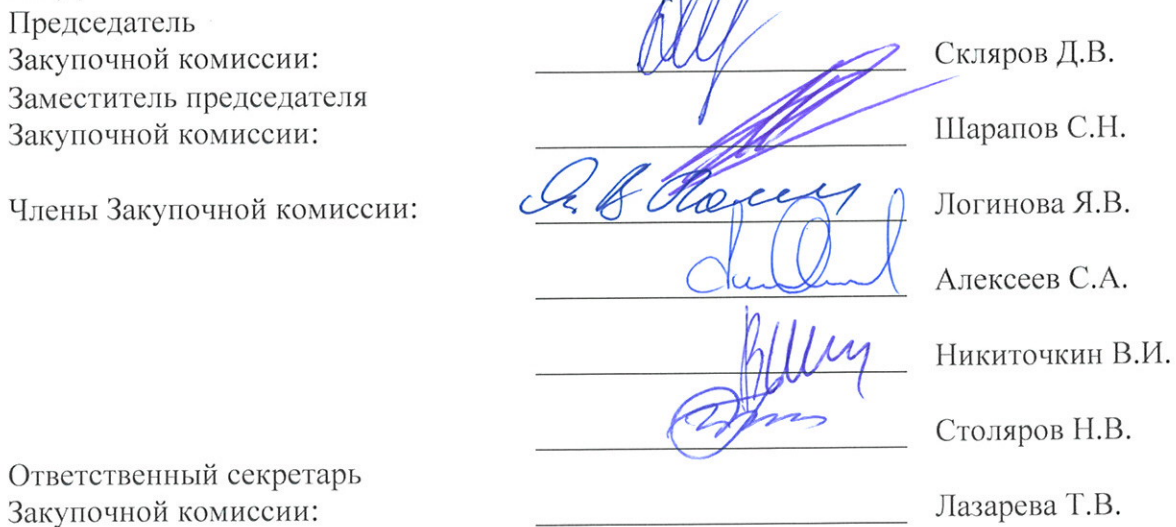 Председатель
Закупочной комиссии: Скляров Д.В.
Заместитель председателя
Закупочной комиссии: Шарапов С.Н.
Члены Закупочной комиссии: Логинова Я.В.
Алексеев С.А.
Никиточкин В.И.
Столяров Н.В.
Ответственный секретарь
Закупочной комиссии: Лазарева Т.В.